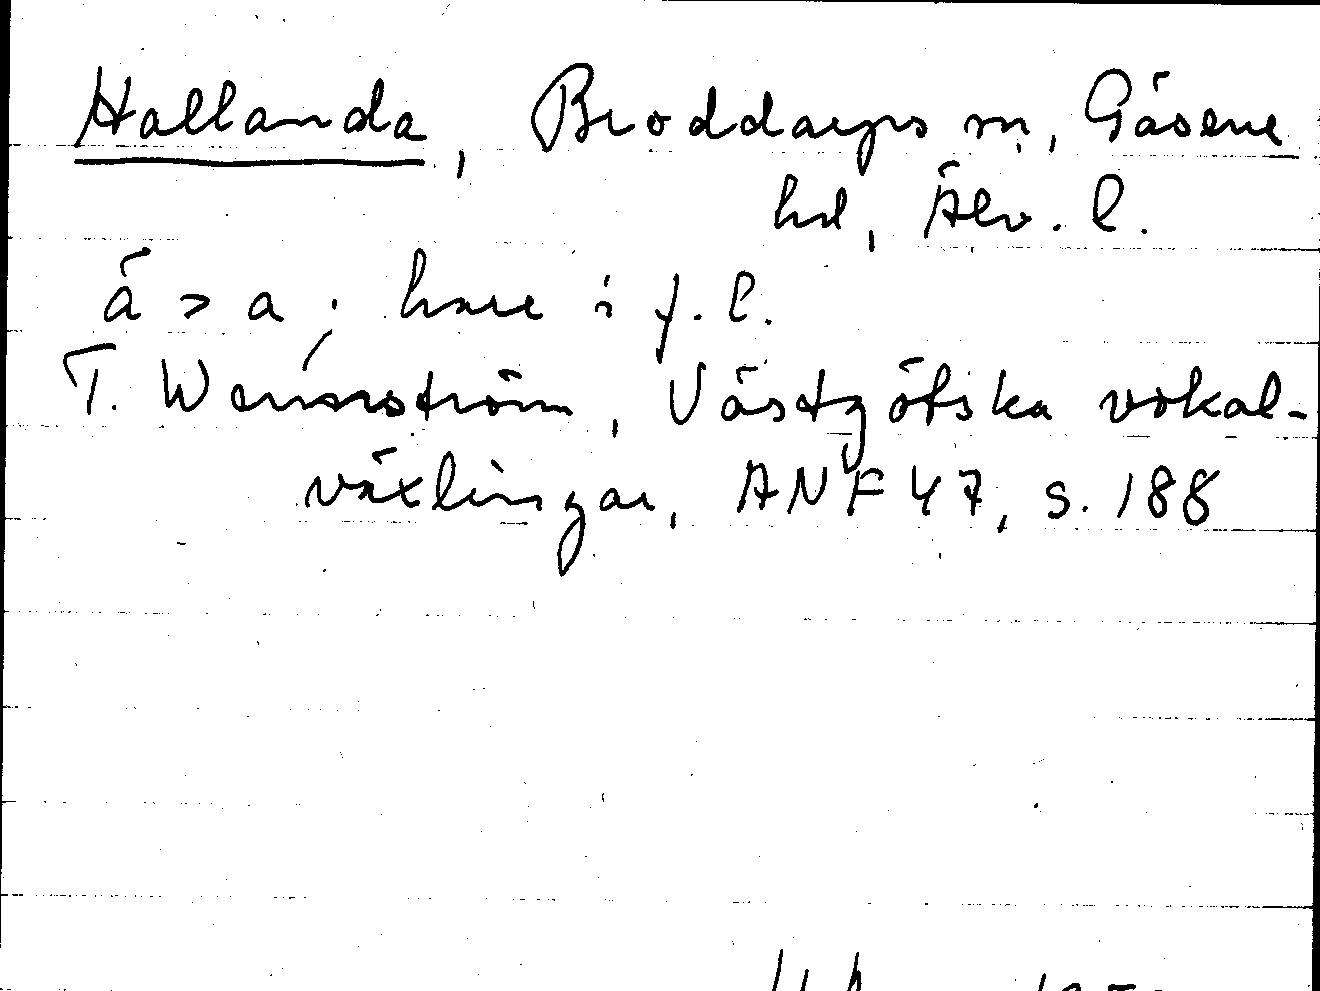 Hallanda, Broddarps sn, Gäsene
hd, Älv. l.
ä > a; hare i f. l.
T. Wennström, Västgötska vokal-
växlingar, ANF 47, s. 188